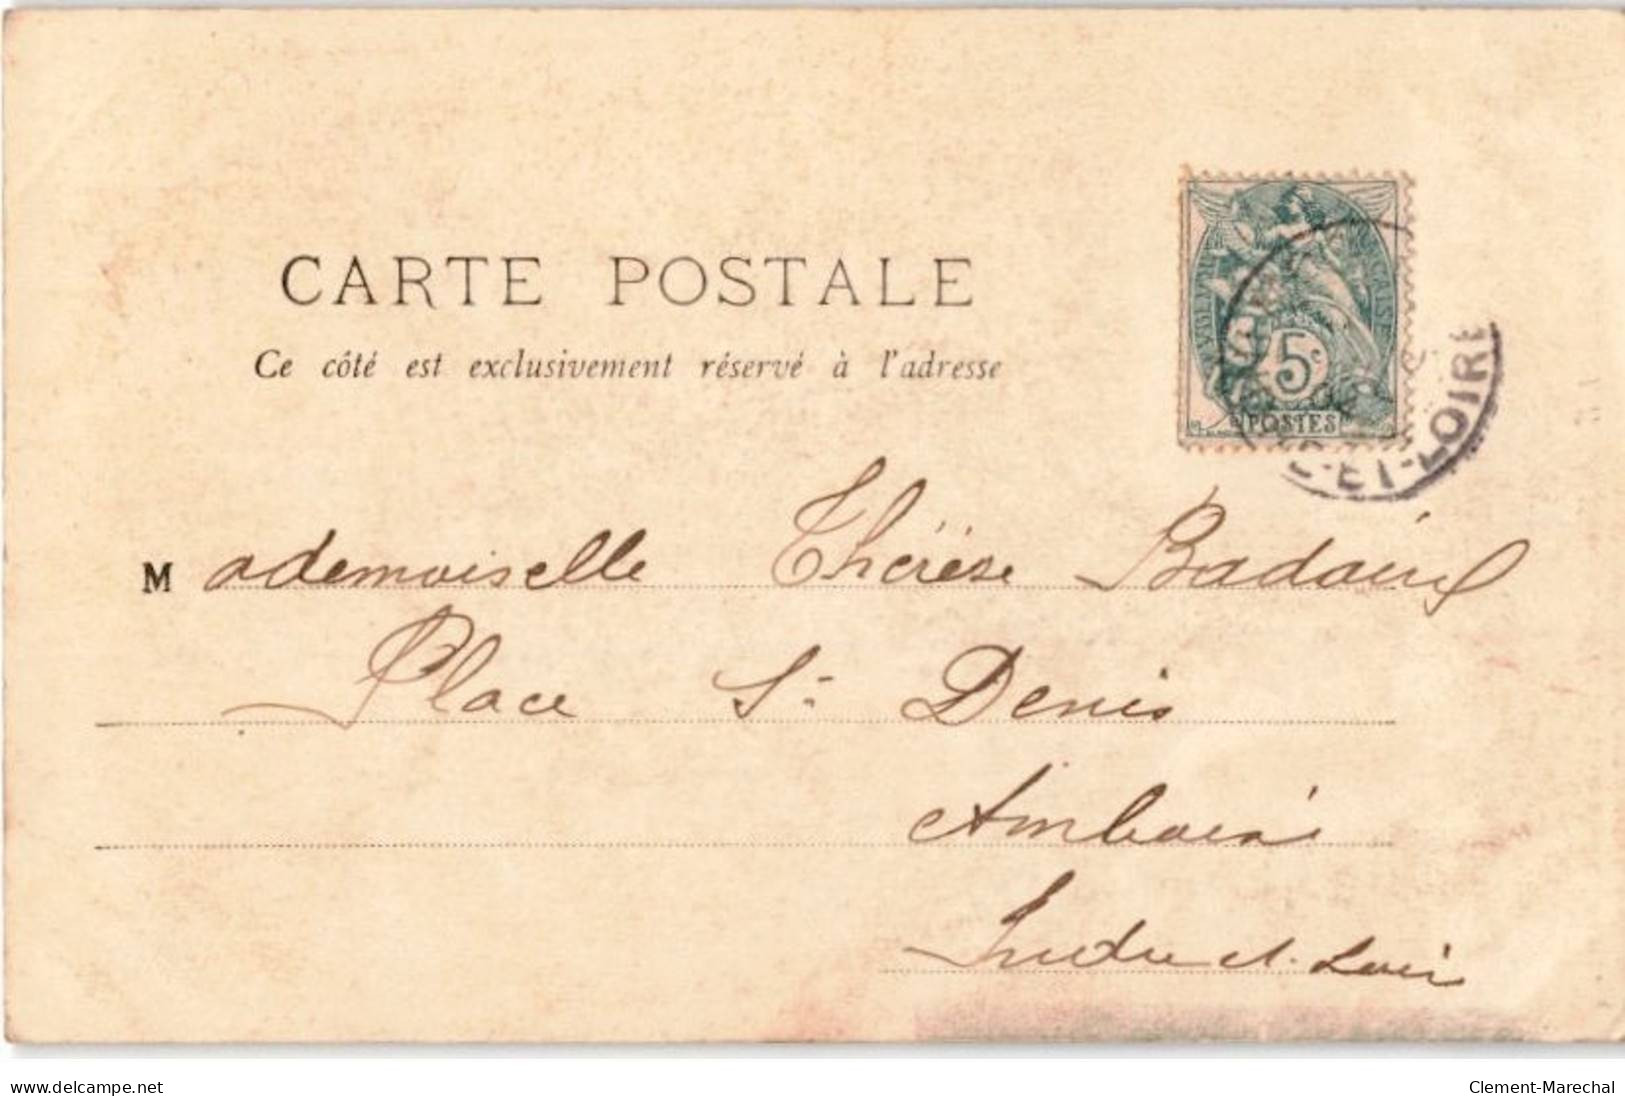 CARTE POSTALE
Ce côté est exclusivement réservé à l'adresse
5c
POSTES
-ET-LOIRE
Mademoiselle Thérèse
Place St Denis
Amboise
Indre et Loire
www.delcampe.net
Clement-Marechal